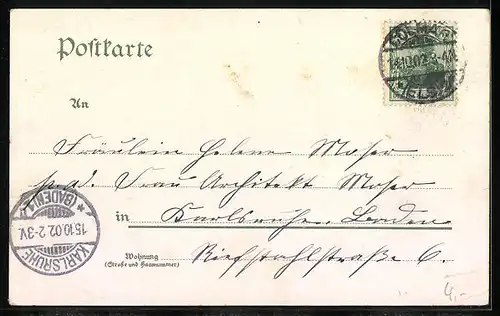 Postkarte
COLMAR
15.10.02.3-4N.
(ELS.)
An
Fräulein Helene Moser
p. ad. Frau Architekt Moser
in Karlsruhe, Baden
Wohnung
(Straße und Hausnummer)
Riefstahlstraße 6.
KARLSRUHE
15.10.02.2-3V.
(BADEN)
4,-